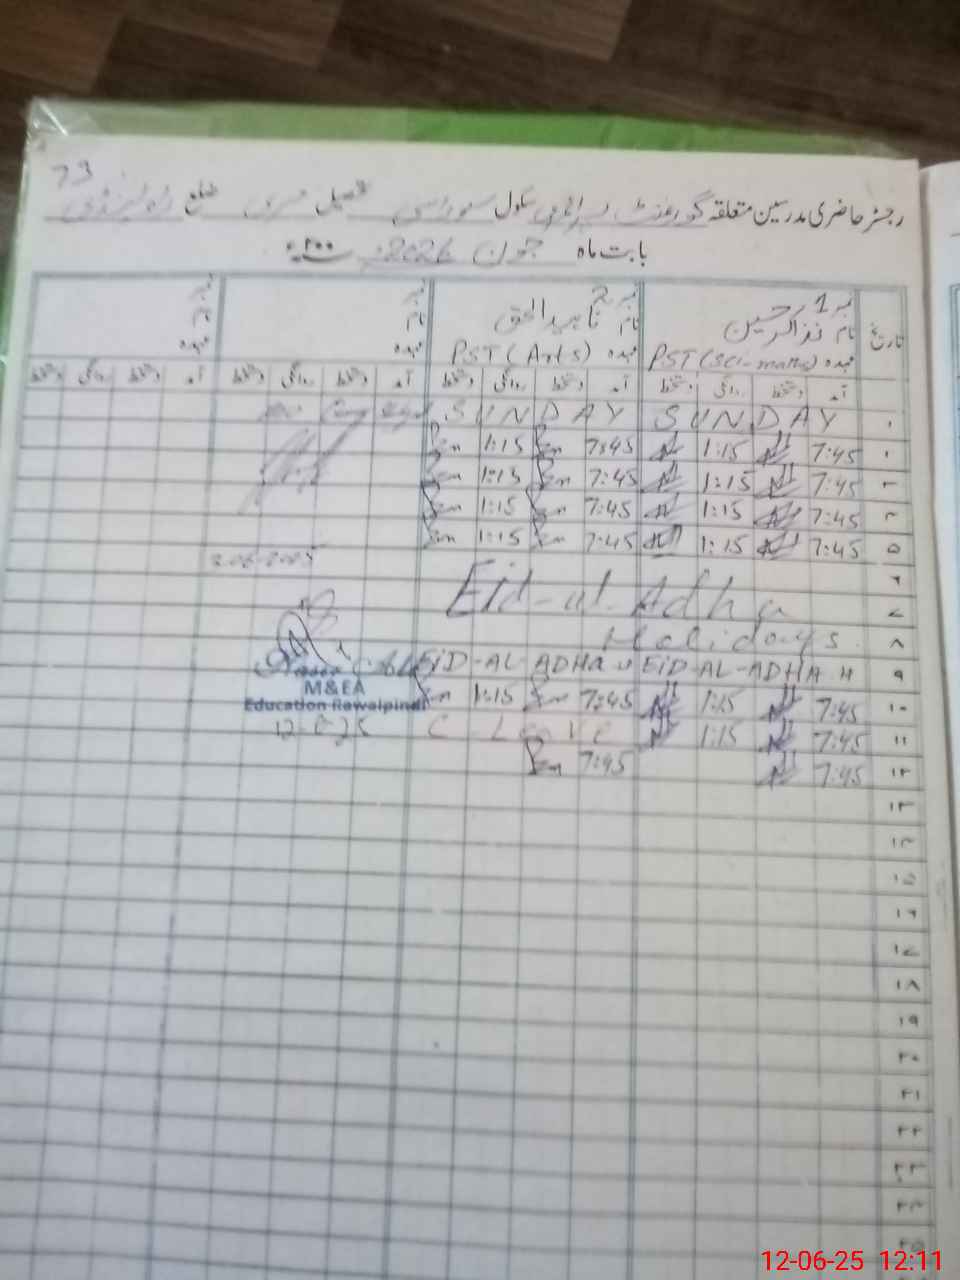 73
رجسٹر حاضری مدرسین متعلقہ گورنمنٹ پرائمری سکول تحصیل مری ضلع راولپنڈی
بابت ماہ جون 2026 ۲۰۰ء
نمبر 1 نمبر 2 نمبر نمبر
نام ذاکر حسین نام الحق نام نام
تاریخ عہدہ PST (Sci-maths) عہدہ PST (Arts) عہدہ عہدہ
آمد دستخط روانگی دستخط آمد دستخط روانگی دستخط آمد دستخط روانگی دستخط آمد دستخط روانگی دستخط
۱ SUNDAY SUNDAY
۲ 7:45 1:15 7:45 1:15
۳ 7:45 1:15 7:45 1:15
۴ 7:45 1:15 7:45 1:15
۵ 7:45 1:15 7:45 1:15
۶ Eid-ul-Adha
۷
۸ Holidays
۹ EID-AL-ADHA H EID-AL-ADHA H
M&EA
۱۰ 7:45 1:15 7:45 1:15
Education Rawalpindi
۱۱ 7:45 1:15 C Leave
۱۲ 7:45 7:45
۱۳
۱۴
۱۵
۱۶
۱۷
۱۸
۱۹
۲۰
۲۱
۲۲
۲۳
۲۴
۲۵
12-06-25 12:11